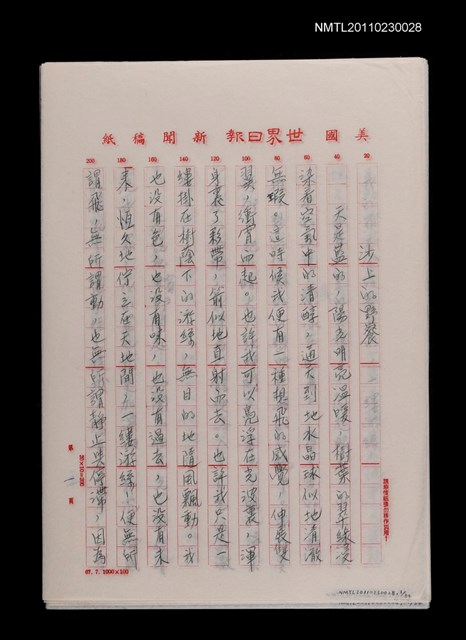 NMTL20110230028
美國世界日報新聞稿紙
200 180 160 140 120 100 80 60 40 20
沙上的野餐
天是藍的，陽光明亮溫暖，樹葉的翠綠浸
染着空氣中的清醇，這天到地水晶球似地清澈
無瑕。這時候我便有一種想飛的感覺，伸長雙
翼，衝霄而起。也許我可以亮浮在光波裏，渾
身裹了彩帶，箭似地直射而去。也許我只是一
縷掛在樹蔭下的游絲，無目的地隨風飄動。我
也沒有色，也沒有味，也沒有過去，也沒有未
來，恆久地佇立在天地間，一縷游絲，便無所
謂飛，無所謂動，也無所謂靜止與停滯，因為
第一頁
20×10=200
87.7.1000×100
NMTL20110230028